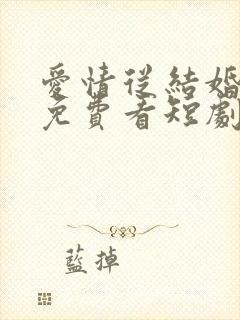 愛情從結婚
免費看短劇
藍掉